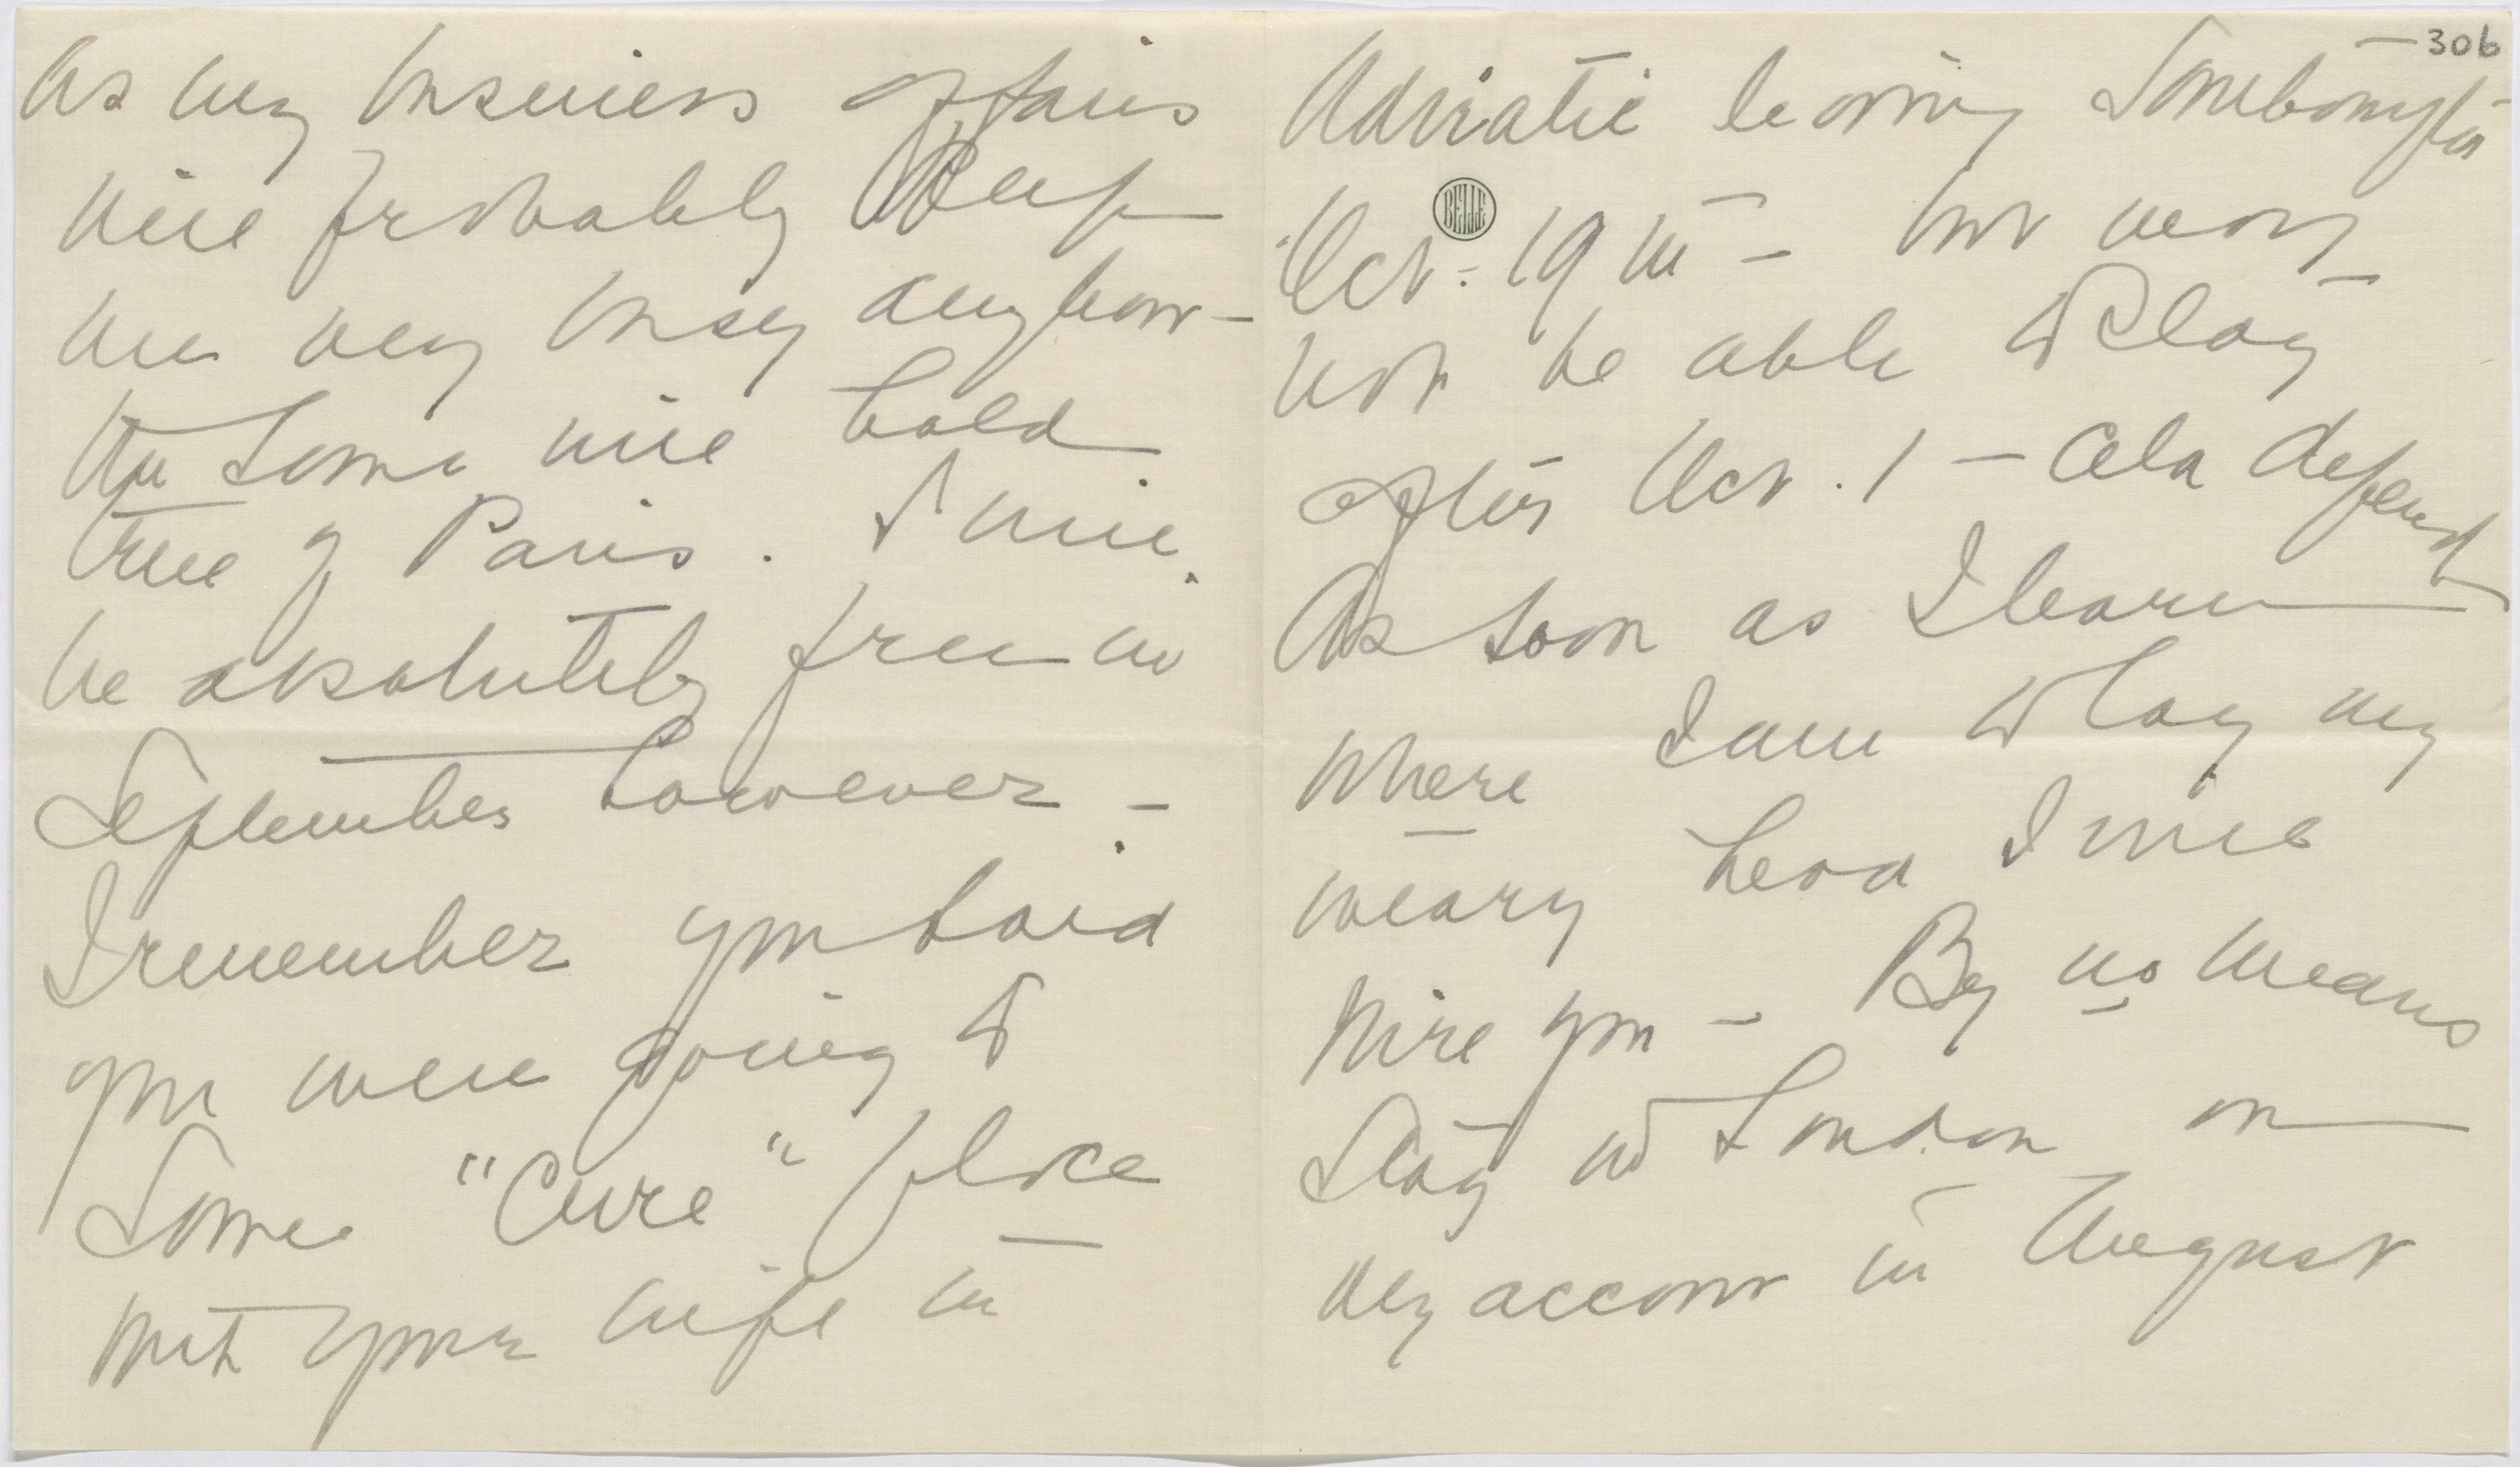 As my business affairs
will probably keep
me very busy anyhow -
the same will hold
true of Paris. I will
be absolutely free in
September however -
I remember you said
you were going to
some "cure" place
with your wife in
306
Adriatic leaving Southampton
BELLE
Oct. 19th - but may
not be able to stay
after Oct. 1 - Cela depend
As soon as I learn
where I am to lay my
weary head I will
wire you - By no means
stay in London on
my account in August